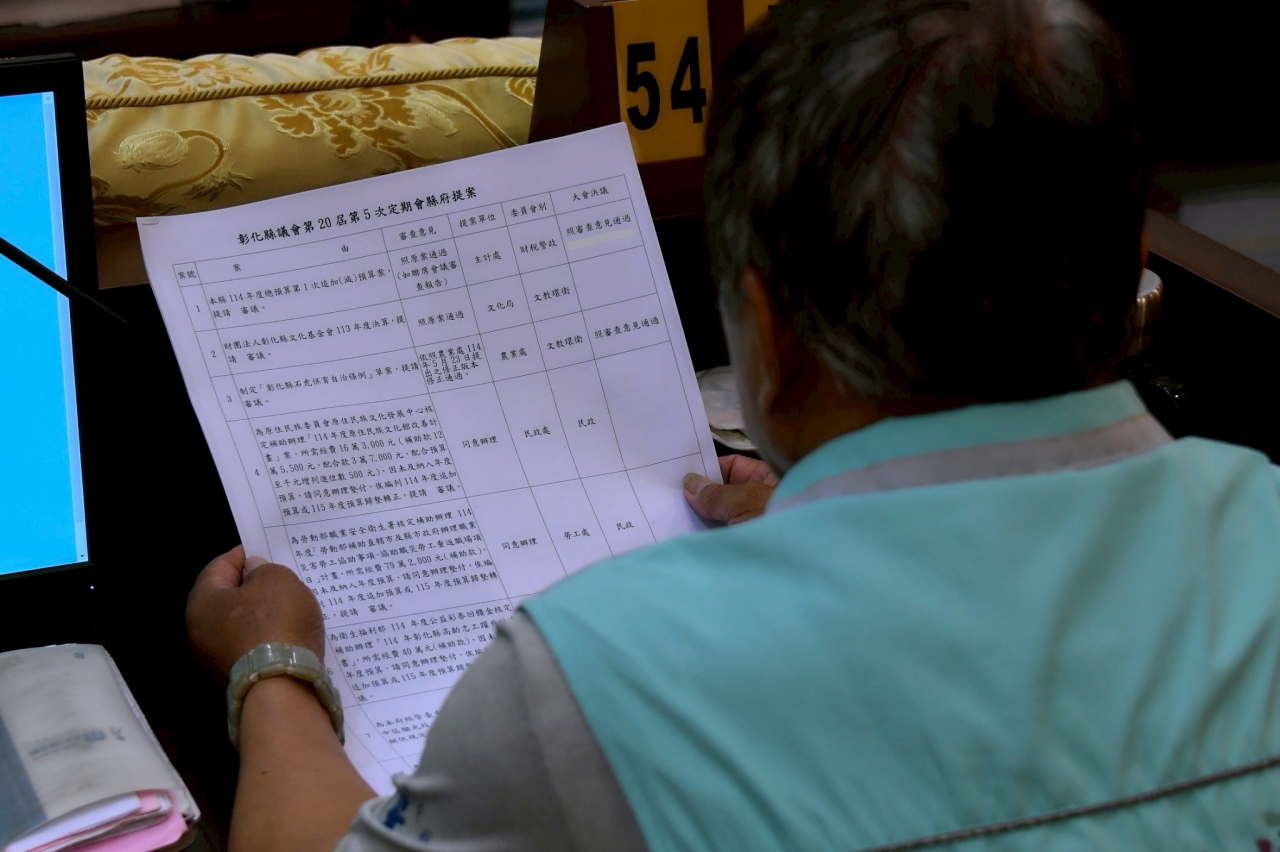 54
彰化縣議會第20屆第5次定期會縣府提案
案號 案 由 審查意見 提案單位 委員會別 大會決議
1 本縣114年度總預算第1次追加(減)預算案,
提請 審議。
照原案通過
(如聯席會議審
查報告)
主計處 財稅警政 照審查意見通過
2 財團法人彰化縣文化基金會113年度決算,提
請 審議。
照原案通過 文化局 文教環衛
3 制定「彰化縣石虎保育自治條例」草案,提請
審議。
依照農業處114
年5月23日提
出之修正版本
修正通過。
農業處 文教環衛 照審查意見通過
4 為原住民族委員會原住民族文化發展中心核
定補助辦理「114年度原住民族文化館改善計
畫」案,所需經費16萬3,000元(補助款12
萬5,500元,配合款3萬7,000元,配合預算
至千元增列進位數500元),因未及納入年度
預算,請同意辦理墊付,俟編列114年度追加
預算或115年度預算歸墊轉正,提請 審議。
同意辦理 民政處 民政
為勞動部職業安全衛生署核定補助辦理114
年度「勞動部補助直轄市及縣市政府辦理職業
災害勞工協助事項-協助職災勞工重返職場項
目」計畫,所需經費79萬2,000元(補助款),
因未及納入年度預算,請同意辦理墊付,俟編
114年度追加預算或115年度預算歸墊轉
正,提請 審議。
同意辦理 勞工處 民政
為衛生福利部114年度公益彩券回饋金核定
補助辦理「114年彰化縣高齡志工
書」,所需經費40萬元(補助款),因
年度預算,請同意辦理墊付,俟
追加預算或115年度預算歸墊
議。
7 為本府